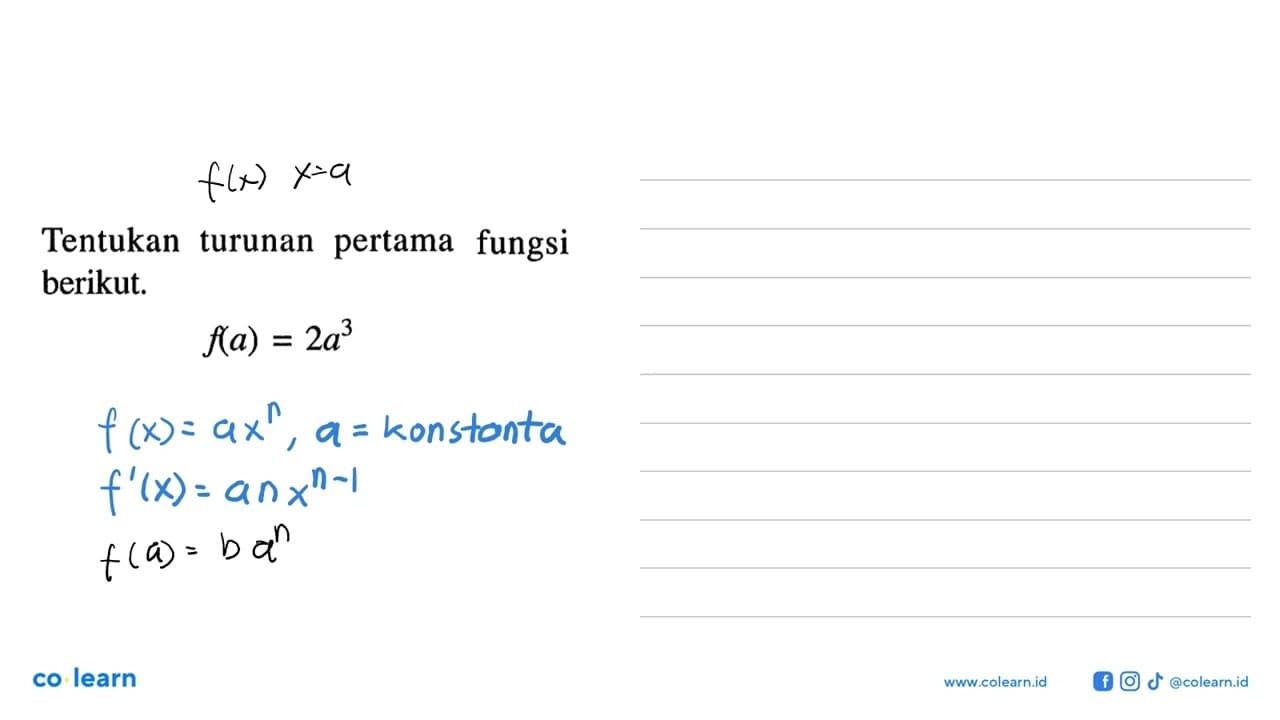 f(x) x=a
Tentukan turunan pertama fungsi
berikut.
f(a) = 2a³
f(x) = axⁿ, a = konstanta
f'(x) = anxⁿ⁻¹
f(a) = b aⁿ
co·learn
www.colearn.id @colearn.id